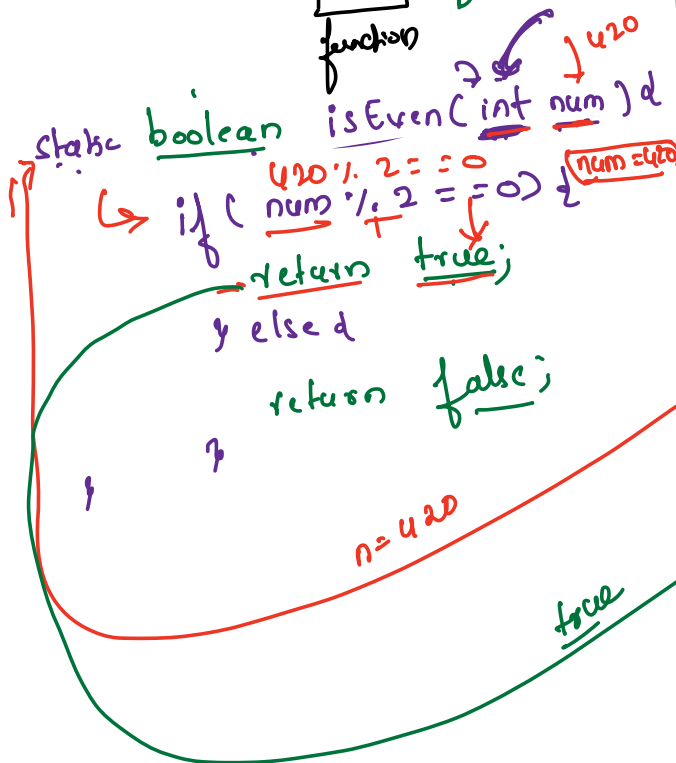 function
420
static boolean isEven( int num ) {
420 % 2 == 0
num = 420
if ( num % 2 == 0) {
return true;
} else {
return false;
}
}
n = 420
true